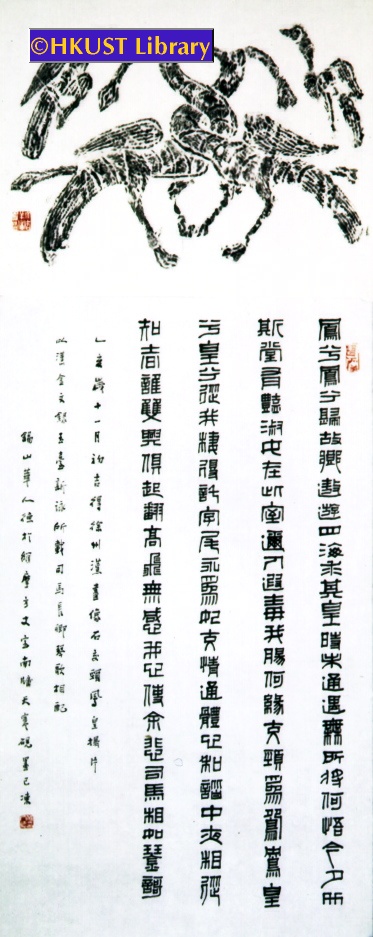 ©HKUST Library
鳳兮鳳兮歸故鄉遨遊四海求其皇時未通遇無所將何悟今夕升
斯堂有豔淑女在此室邇人遐毒我腸何緣交頸為鴛鴦皇
兮皇兮從我棲得託字尾永為妃交情通體心和諧中夜相從
知者誰雙興俱起翻高飛無感我心使余悲司馬相如琴歌
乙亥歲十一月初吉得徐州漢畫像石交頸鳳皇搨片
以漢金文錄玉臺新詠所載司馬長卿琴歌相配
錫山華人德於維摩方丈室南牖天寒硯墨已凍